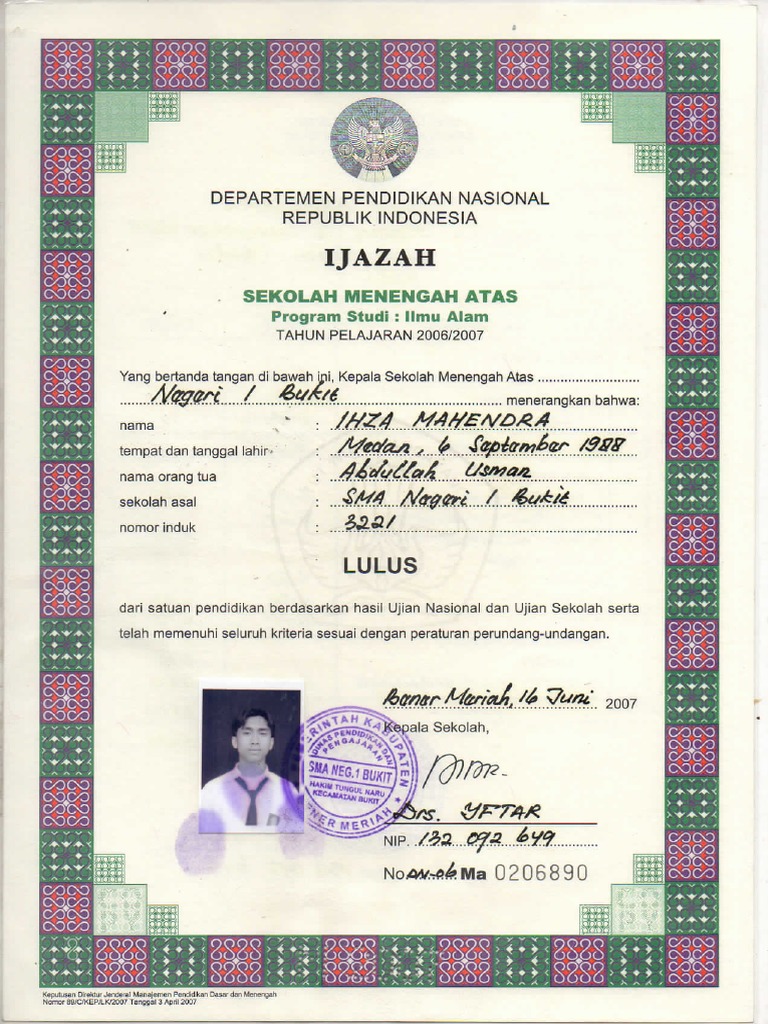 DEPARTEMEN PENDIDIKAN NASIONAL
REPUBLIK INDONESIA
IJAZAH
SEKOLAH MENENGAH ATAS
Program Studi : Ilmu Alam
TAHUN PELAJARAN 2006/2007
Yang bertanda tangan di bawah ini, Kepala Sekolah Menengah Atas
Nagari 1 Bukit menerangkan bahwa:
nama : IHZA MAHENDRA
tempat dan tanggal lahir : Medan, 6 Saptambar 1988
nama orang tua : Abdullah Usman
sekolah asal : SMA Nagari 1 Bukit
nomor induk : 3221
LULUS
dari satuan pendidikan berdasarkan hasil Ujian Nasional dan Ujian Sekolah serta
telah memenuhi seluruh kriteria sesuai dengan peraturan perundang-undangan.
Banar Mariah, 16 Juni 2007
Kepala Sekolah,
PEMERINTAH KABUPATEN
DINAS PENDIDIKAN DAN
PENGAJARAN
SMA NEG.1 BUKIT
HAKIM TUNGUL NARU
KECAMATAN BUKIT
BENER MERIAH
Drs. YFTAR
NIP. 132 092 649
No DN-06 Ma 0206890
Keputusan Direktur Jenderal Manajemen Pendidikan Dasar dan Menengah
Nomor 89/C/KEP/LK/2007 Tanggal 3 April 2007